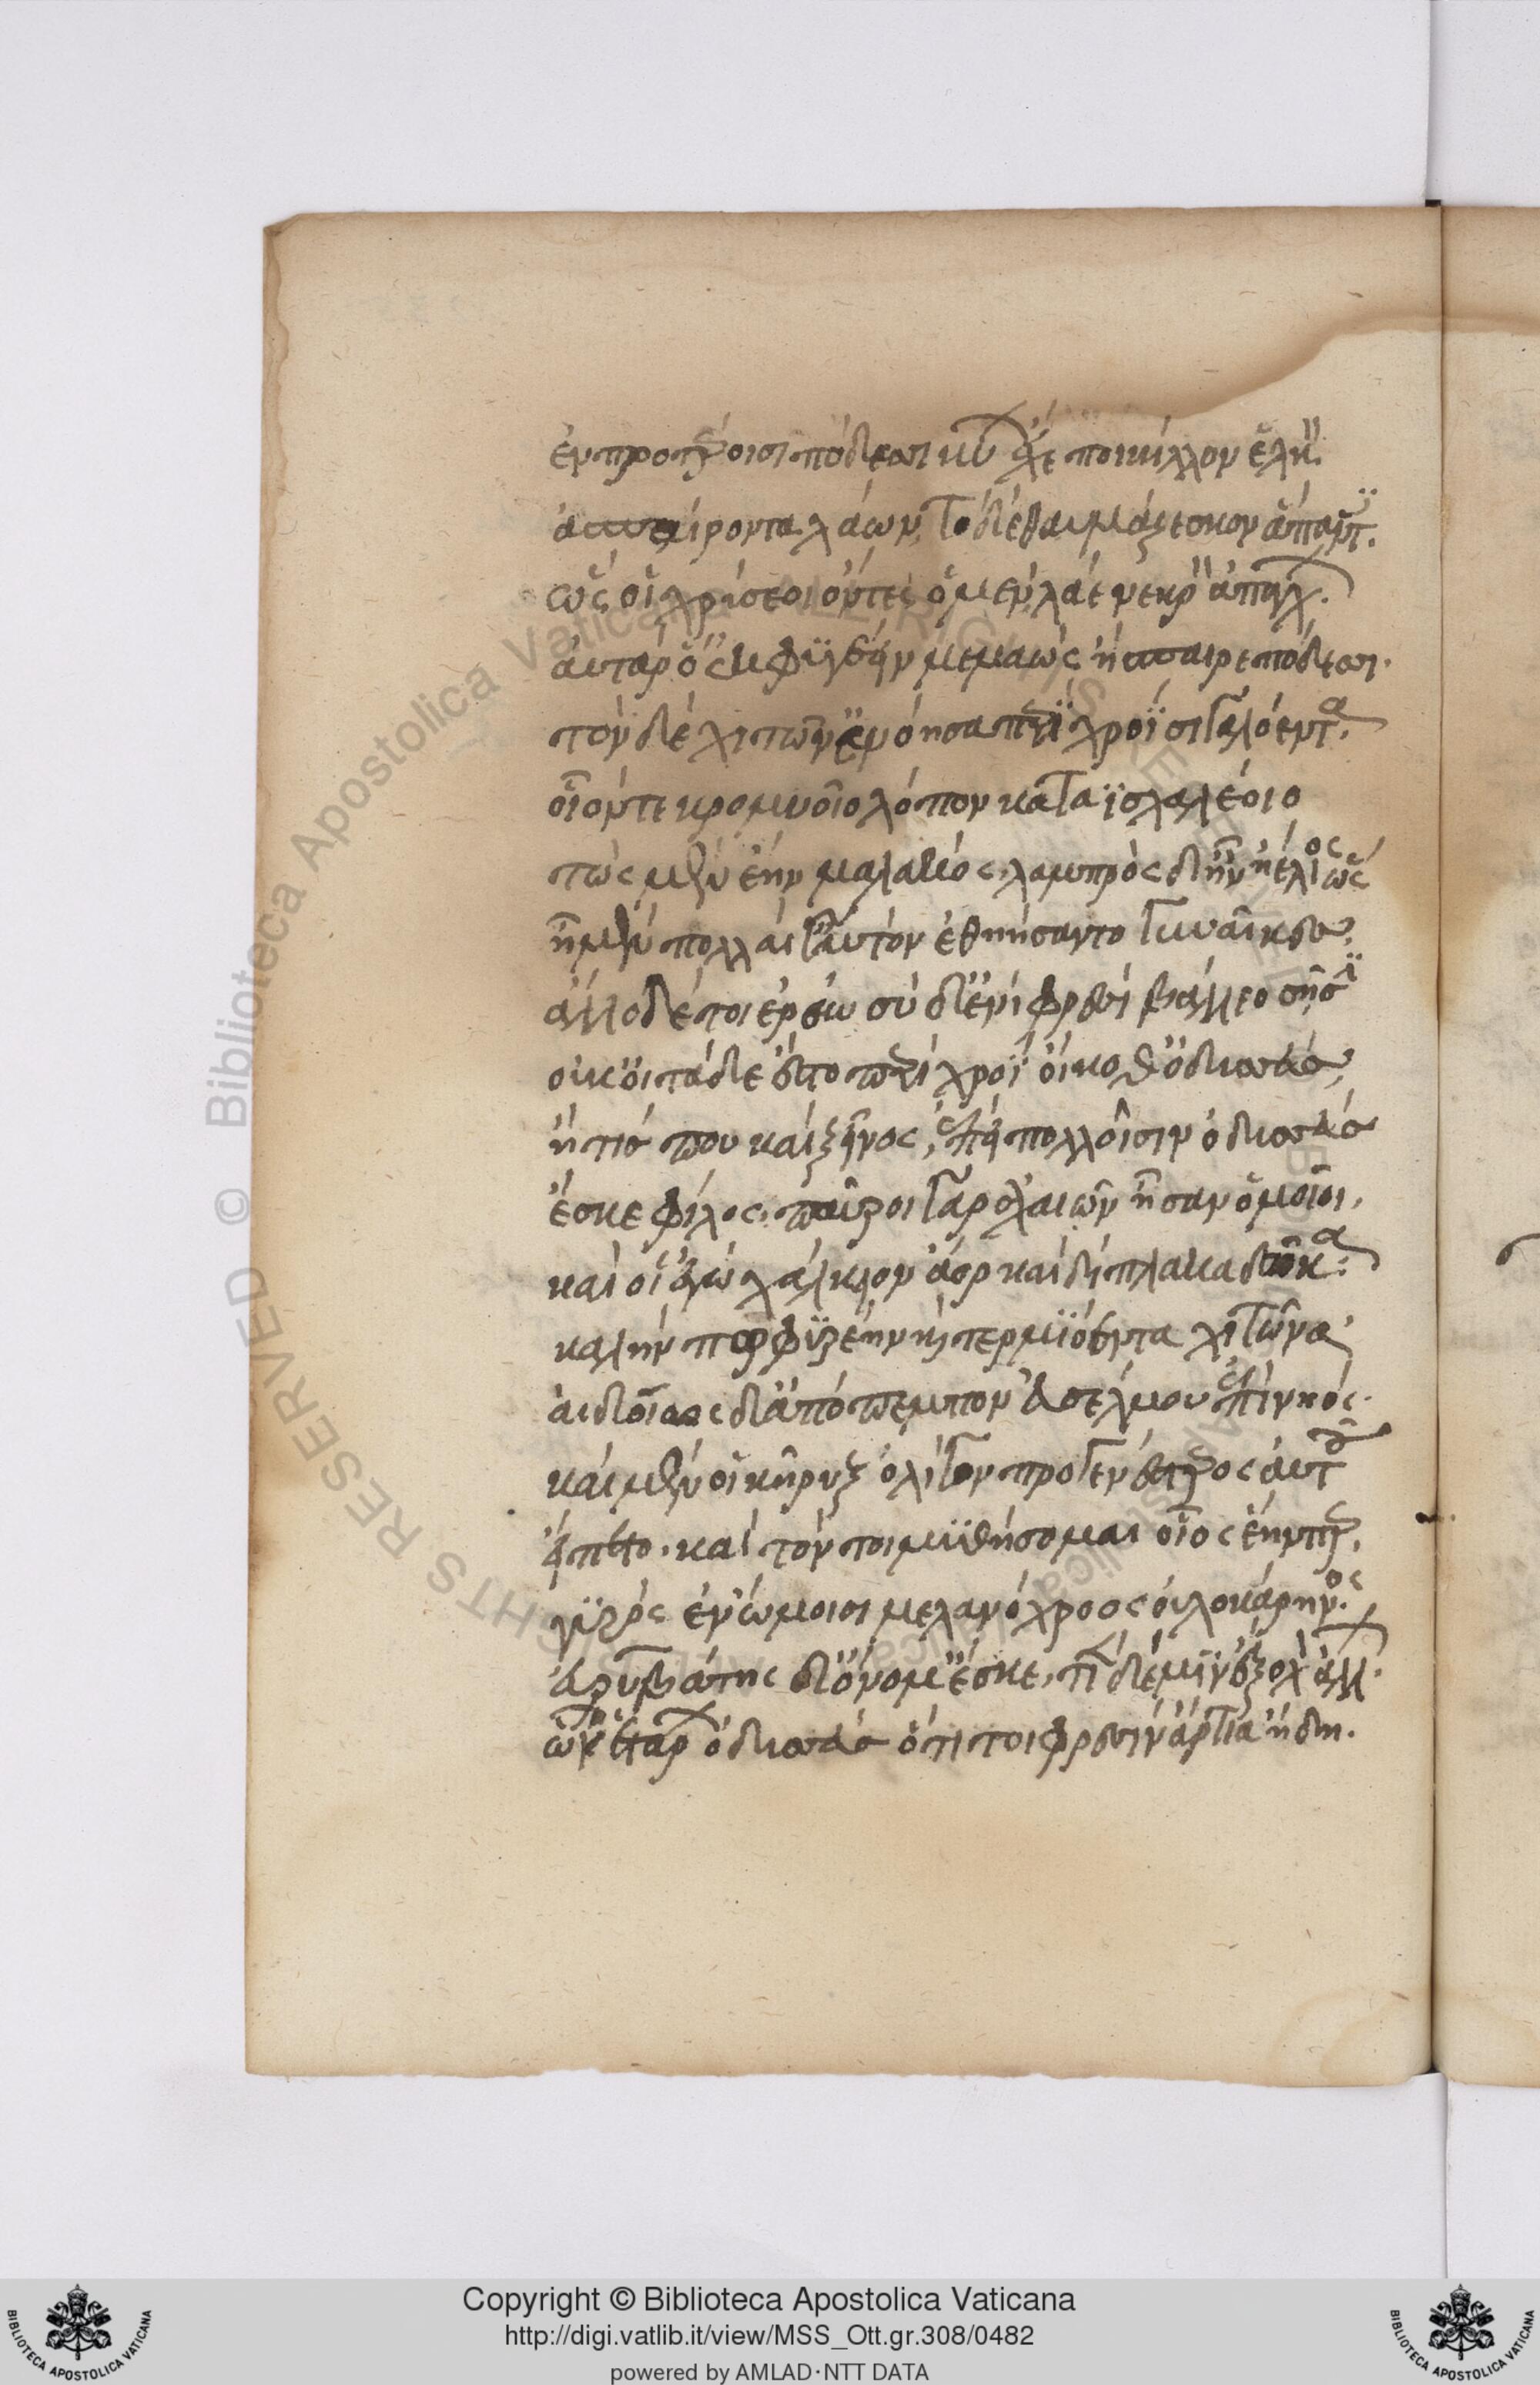 ἐν προτέροισι πόδεσσι κύων ἔχε ποικίλλον ἐλλὸν
ἀσπαίροντα λάων, τὸ δὲ θαυμάζεσκον ἅπαντες.
ὡς οἱ χρύσεοι ὄντες ὁ μὲν λάε νεκρὸν ἀπάγχων.
αὐτὰρ ὁ ἐκφυγέειν μεμαὼς ἤσπαιρε πόδεσσι.
τὸν δὲ χιτῶν' ἐνόησα περὶ χροῒ σιγαλόεντα.
οἷόν τε κρομυοῖο λόπον κατα ϊσχαλέοιο
τὼς μὲν ἔην μαλακός, λαμπρὸς δ' ἦν ἠέλιος ὥς
ἦ μὲν πολλαί γ' αὐτὸν ἐθηήσαντο γυναῖκες.
ἄλλο δέ τοι ἐρέω σὺ δ' ἐνὶ φρεσὶ βάλλεο σῇσι
οὐκ οἶδ' ἢ τάδε ἕστο περὶ χροῒ οἴκοθ' ὀδυσσεύς,
ἤ τίς που καὶ ξεῖνος, ἐπεὶ πολλοῖσιν ὀδυσσεὺς
ἔσκε φίλος. παῦροι γὰρ ἀχαιῶν ἦσαν ὁμοῖοι.
καί οἱ ἐγὼ χάλκειον ἄορ καὶ δίπλακα δῶκα.
καλὴν πορφυρέην καὶ τερμϊόεντα χιτῶνα
αἰδοίως δ' ἀπόπεμπον ἐυσέλμου ἐπὶ νηός.
καὶ μέν οἱ κῆρυξ ὀλίγον προγενέστερος αὐτοῦ
εἵπετο. καὶ τόν τοι μυθήσομαι οἷος ἔην περ.
γυρὸς ἐν ὤμοισι μελανόχροος οὐλοκάρηνος.
εὐρυβάτης δ' ὄνομ' ἔσκε, τῖεν δέ μιν ἔξοχ' ἄλλων.
ὧν ἑτάρων ὀδυσσεὺς ὅτι οἱ φρεσὶν ἄρτια ᾔδη.
Copyright © Biblioteca Apostolica Vaticana
http://digi.vatlib.it/view/MSS_Ott.gr.308/0482
powered by AMLAD·NTT DATA